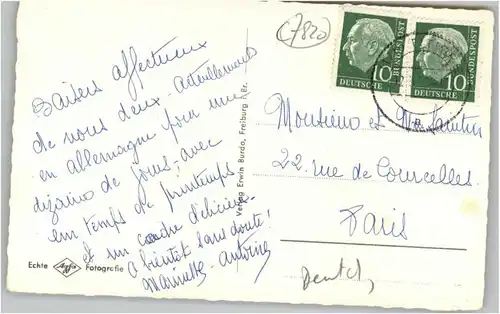 (7820)
Baisers affectueux
de nous deux. Actuellement
en Allemagne pour une
dizaine de jours, avec
un temps de printemps
et un cadre délicieux.
A bientôt sans doute!
Marinette - Antoine
Echte Agfa Fotografie
Verlag Erwin Burda, Freiburg i. Br.
10 DEUTSCHE BUNDESPOST
10 DEUTSCHE BUNDESPOST
Monsieur et Me
22 rue de Courcelles.
Paris